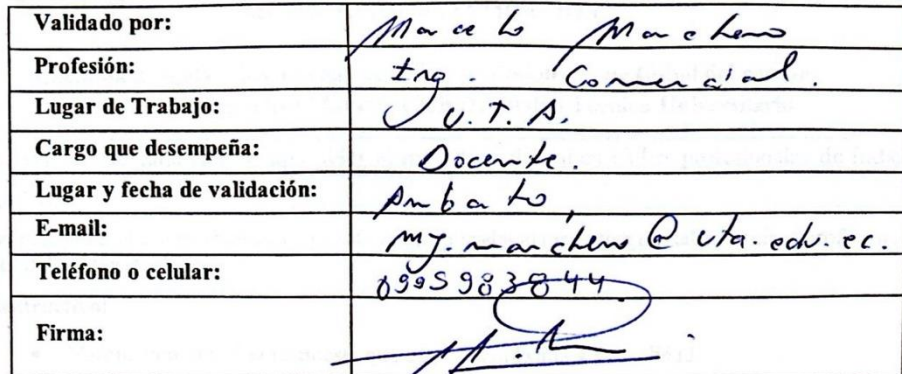 Validado por: Marcelo Mancheno
Profesión: Ing. Comercial.
Lugar de Trabajo: U.T.A.
Cargo que desempeña: Docente.
Lugar y fecha de validación: Ambato,
E-mail: mg.mancheno@uta.edu.ec.
Teléfono o celular: 0995983844
Firma: